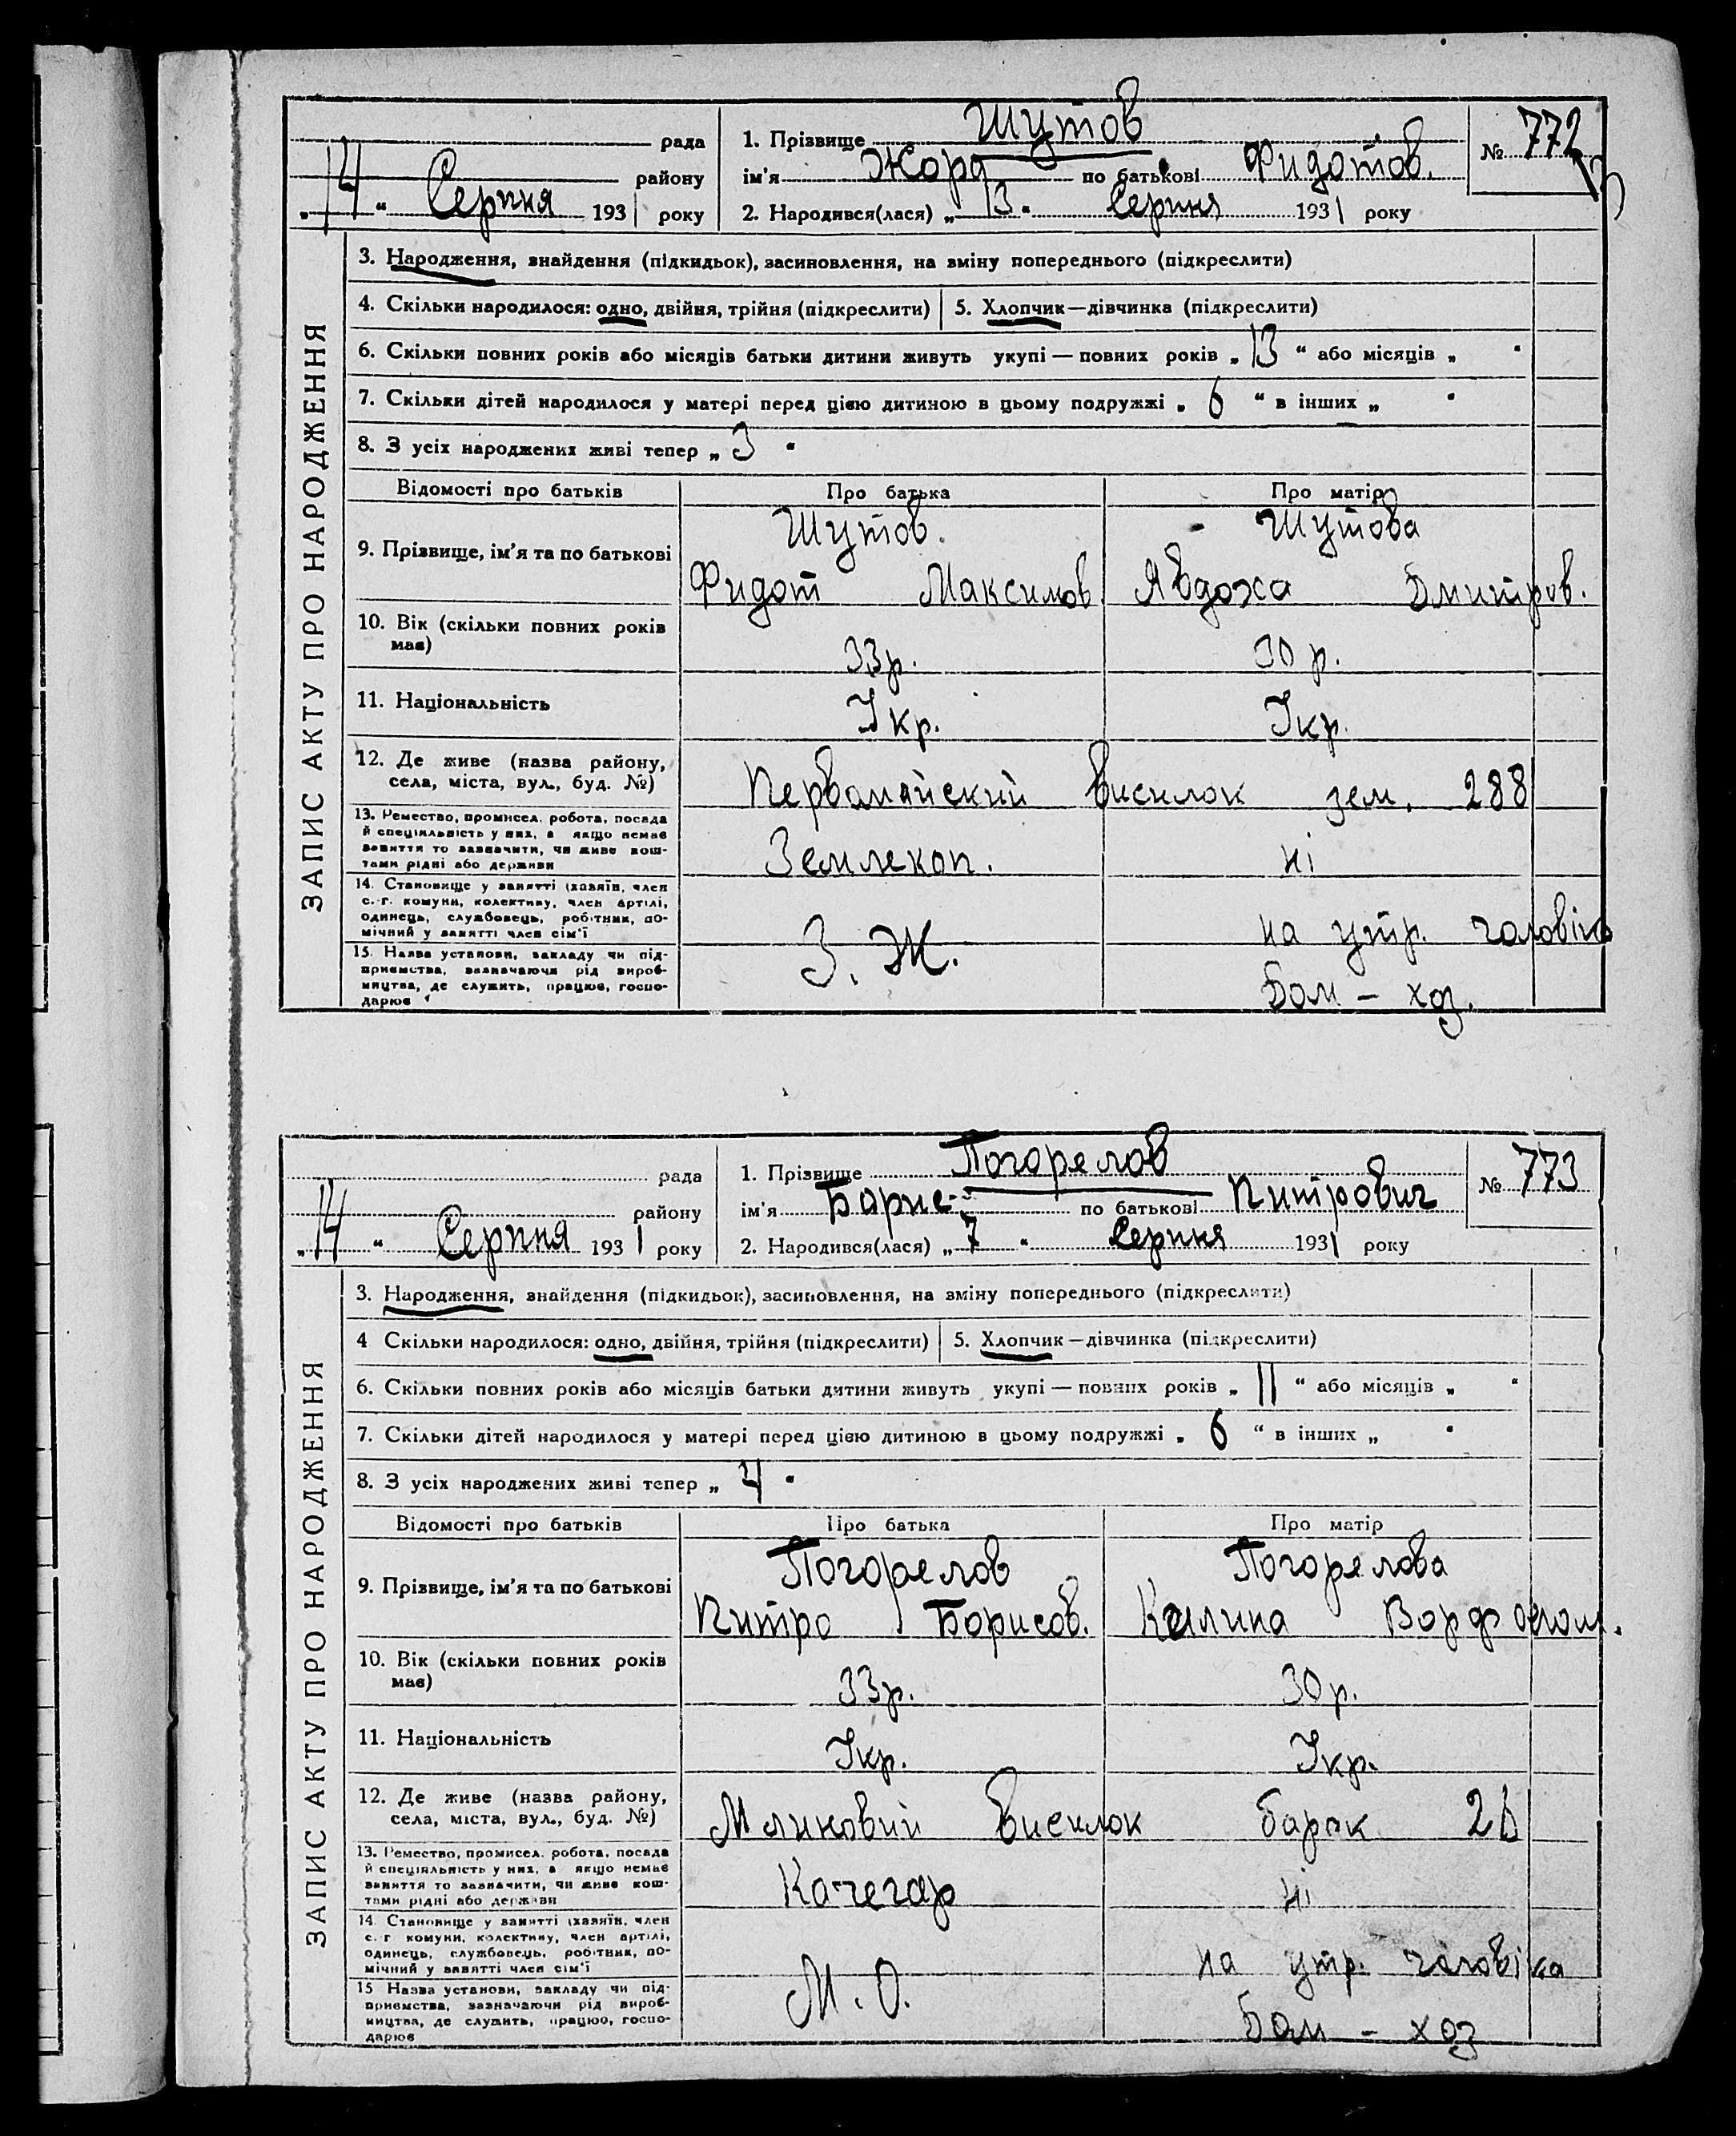 рада
району
„14“ Серпня 1931 року
1. Прізвище Шутов
ім'я Жорд по батькові Фидотов.
2. Народився(лася) „13“ Серпня 1931 року
№ 772
ЗАПИС АКТУ ПРО НАРОДЖЕННЯ
3. Народження, знайдення (підкидьок), засиновлення, на зміну попереднього (підкреслити)
4. Скільки народилося: одно, двійня, трійня (підкреслити)
5. Хлопчик—дівчинка (підкреслити)
6. Скільки повних років або місяців батьки дитини живуть укупі — повних років „13“ або місяців „ “
7. Скільки дітей народилося у матері перед цією дитиною в цьому подружжі „6“ в інших „ “
8. З усіх народжених живі тепер „3“
Відомості про батьків Про батька Про матір
9. Прізвище, ім'я та по батькові
Шутов. Шутова
Фидот Максимов Явдоха Дмитров.
10. Вік (скільки повних років
має)
33р. 30 р.
11. Національність Укр. Укр.
12. Де живе (назва району,
села, міста, вул., буд. №)
Первомайский висилок зем. 288
13. Ремество, промисел, робота, посада
й спеціяльність у них, а якщо немає
заняття то зазначити, чи живе кош-
тами рідні або держави
Землекоп. ні
14. Становище у занятті (хазяїн, член
с.-г. комуни, колективу, член артілі,
одинець, службовець, робітник, по-
мічний у занятті член сім'ї
на утр. чоловіка
15. Назва установи, закладу чи під-
приємства, зазначаючи рід вироб-
ництва, де служить, працює, госпо-
дарює
З. Ж. Дом – хоз.
рада
району
„14“ Серпня 1931 року
1. Прізвище Погорелов
ім'я Барис по батькові Питрович
2. Народився(лася) „7“ Серпня 1931 року
№ 773
ЗАПИС АКТУ ПРО НАРОДЖЕННЯ
3. Народження, знайдення (підкидьок), засиновлення, на зміну попереднього (підкреслити)
4 Скільки народилося: одно, двійня, трійня (підкреслити)
5. Хлопчик—дівчинка (підкреслити)
6. Скільки повних років або місяців батьки дитини живуть укупі — повних років „11“ або місяців „ “
7. Скільки дітей народилося у матері перед цією дитиною в цьому подружжі „6“ в інших „ “
8. З усіх народжених живі тепер „4“
Відомості про батьків Про батька Про матір
9. Прізвище, ім'я та по батькові
Погорелов Погорелова
Питро Борисов. Калина
10. Вік (скільки повних років
має)
33р. 30р.
11. Національність Укр. Укр.
12. Де живе (назва району,
села, міста, вул., буд. №)
Млиновий висилок барак
13. Ремество, промисел, робота, посада
й спеціяльність у них, а якщо немає
заняття то зазначити, чи живе кош-
тами рідні або держави
Качегар ні
14. Становище у занятті (хазяїн, член
с.-г. комуни, колективу, член артілі,
одинець, службовець, робітник, по-
мічний у занятті член сім'ї
на утр. чоловіка
15 Назва установи, закладу чи під-
приємства, зазначаючи рід вироб-
ництва, де служить, працює, госпо-
дарює
М. О. Дом – хоз